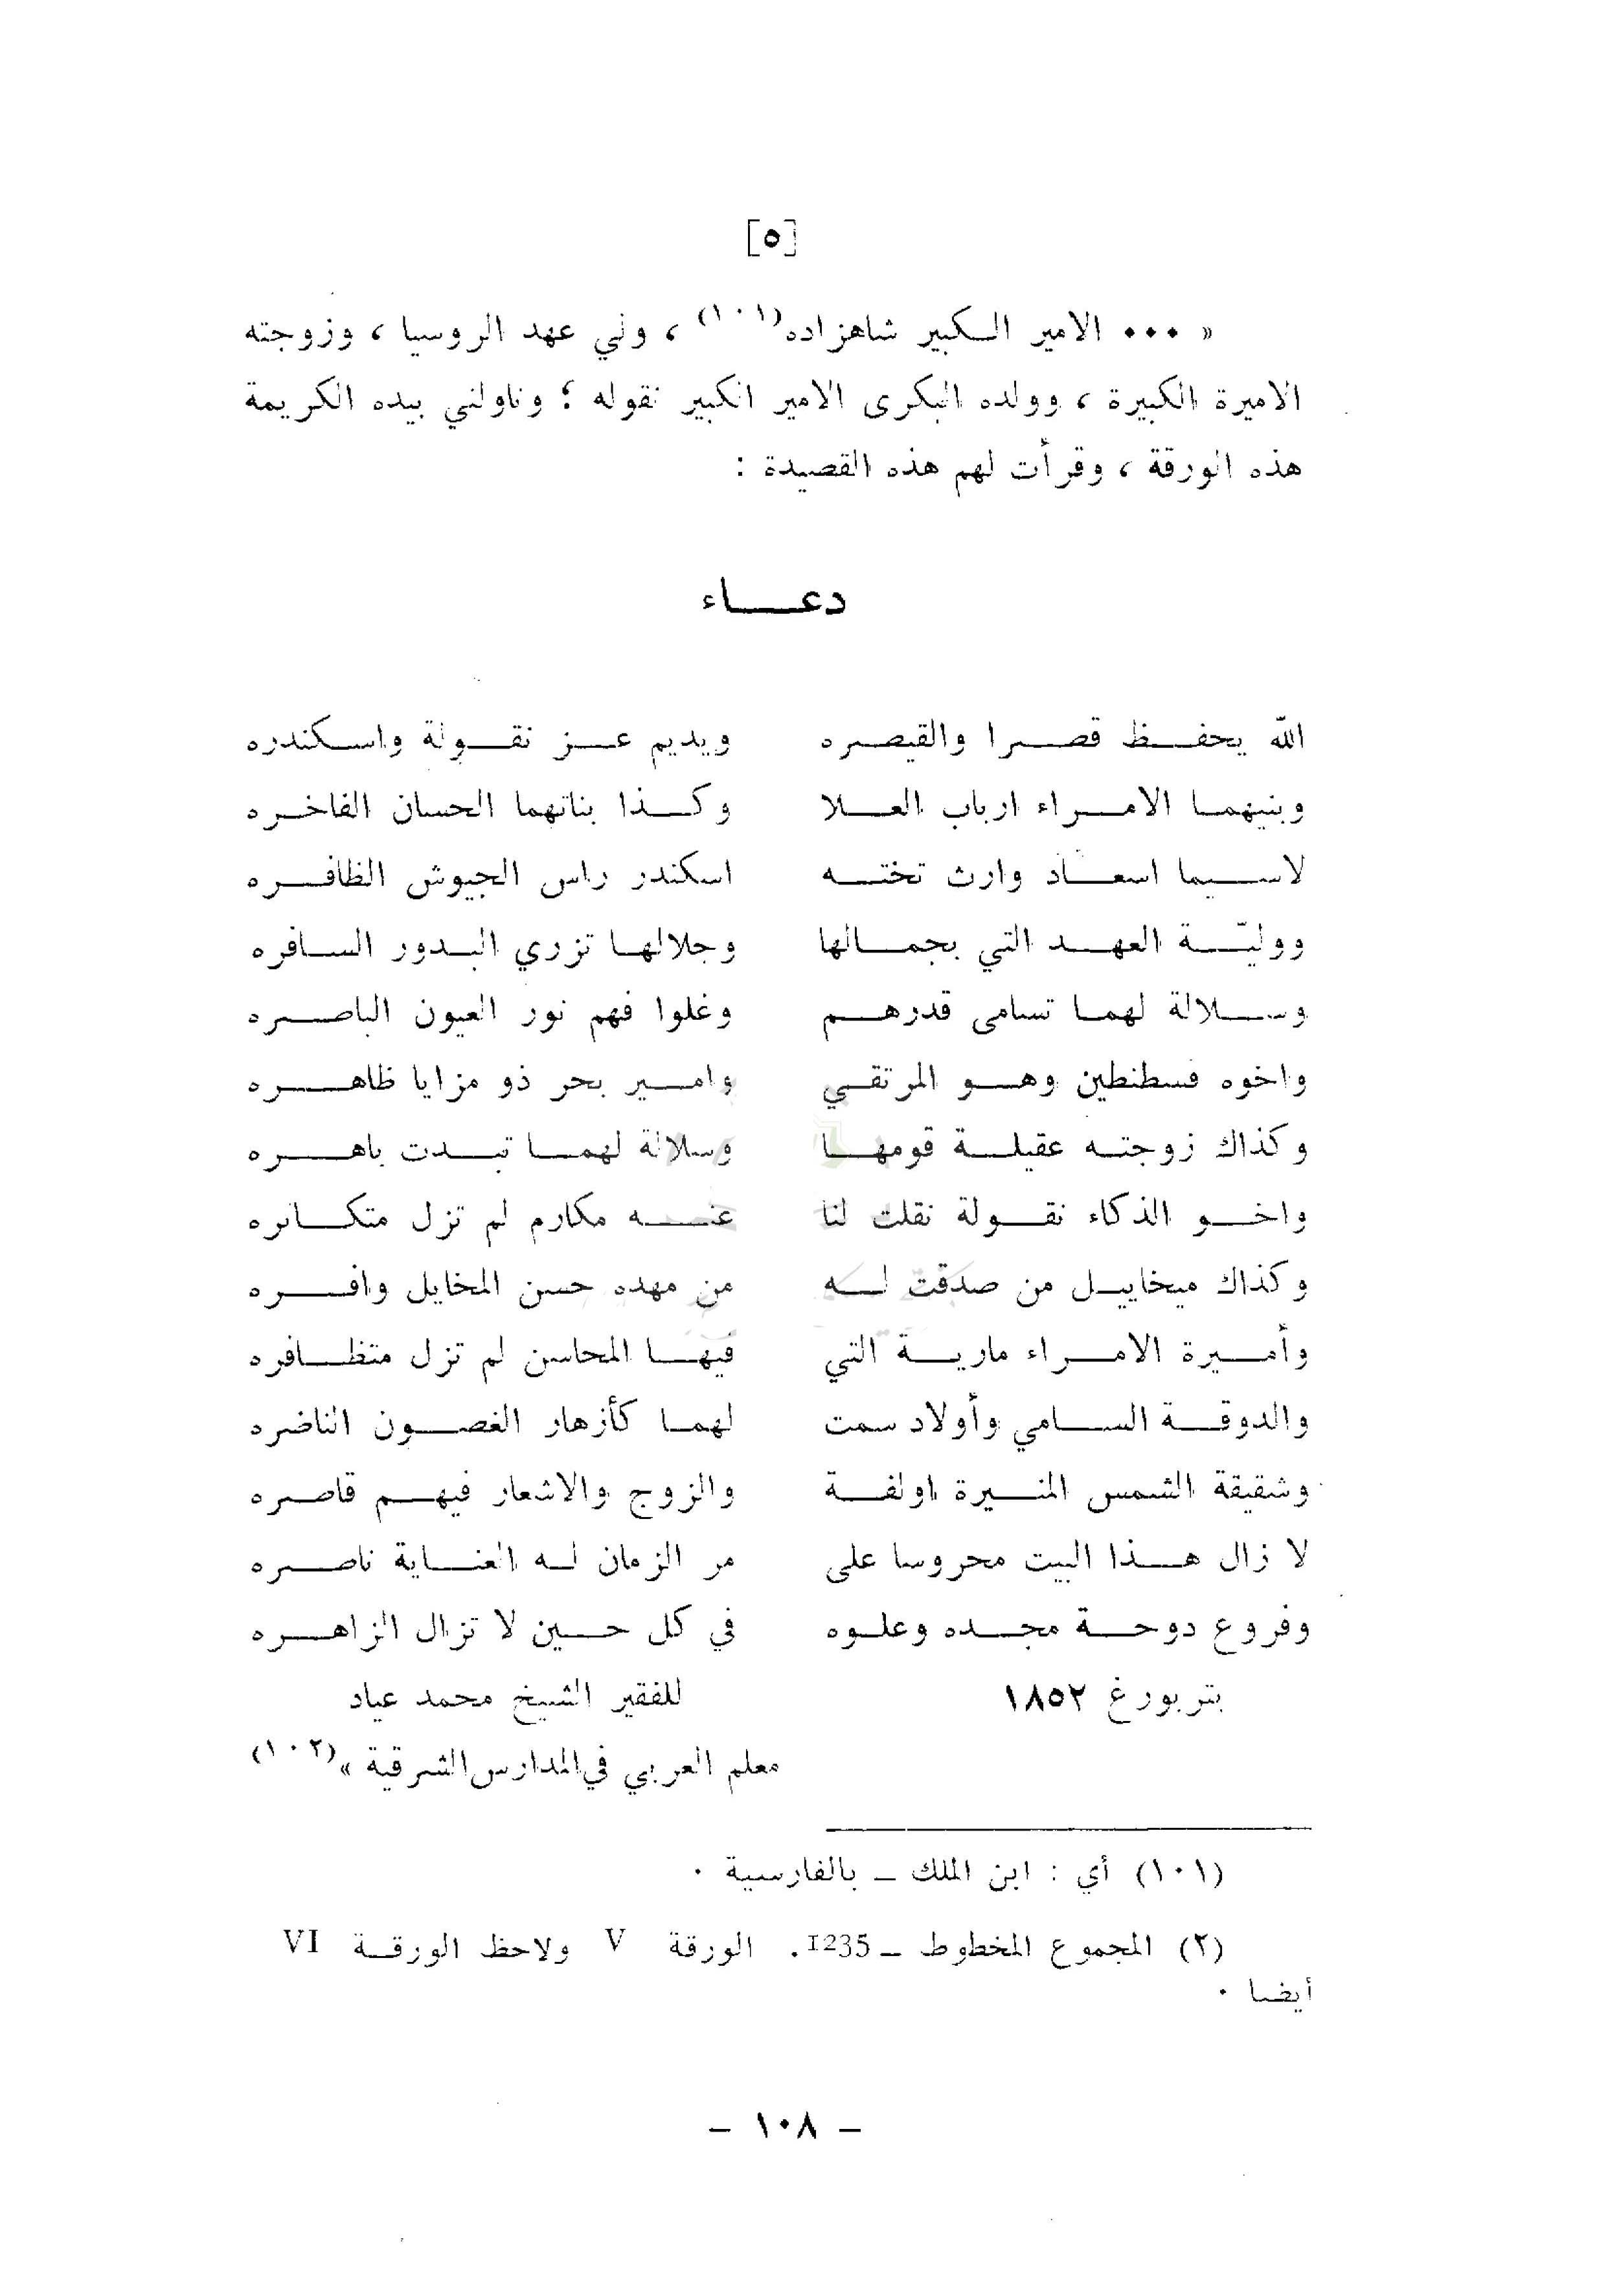 [٥]
« ••• الامير الكبير شاهزاده(١٠١) ، ولي عهد الروسيا ، وزوجته
الاميرة الكبيرة ، وولده البكرى الامير الكبير نقوله ؛ وناولني بيده الكريمة
هذه الورقة ، وقرأت لهم هذه القصيدة :
دعاء
الله يحفظ قصرا والقيصره ويديم عز نقولة واسكندره
وبنيهما الامراء ارباب العلا وكذا بناتهما الحسان الفاخره
لاسيما اسعاد وارث تخته اسكندر راس الجيوش الظافره
ووليّة العهد التي بجمالها وجلالها تزري البدور السافره
وسلالة لهما تسامى قدرهم وغلوا فهم نور العيون الباصره
واخوه قسطنطين وهو المرتقي وامير بحر ذو مزايا ظاهره
وكذاك زوجته عقيلة قومها وسلالة لهما تبدت باهره
واخو الذكاء نقولة نقلت لنا عنه مكارم لم تزل متكاثره
وكذاك ميخاييل من صدقت له من مهده حسن المخايل وافره
وأميرة الامراء مارية التي فيها المحاسن لم تزل متظافره
والدوقة السامي وأولاد سمت لهما كأزهار الغصون الناضره
وشقيقة الشمس المنيرة اولغة والزوج والاشعار فيهم قاصره
لا زال هذا البيت محروسا على مر الزمان له العناية ناصره
وفروع دوحة مجده وعلوه في كل حين لا تزال الزاهره
بتربورغ ١٨٥٢ للفقير الشيخ محمد عياد
معلم العربي في المدارس الشرقية »(١٠٢)
(١٠١) أي : ابن الملك ــ بالفارسية •
(٢) المجموع المخطوط ــ 1235. الورقة V ولاحظ الورقة VI
أيضا •
– ١٠٨ –